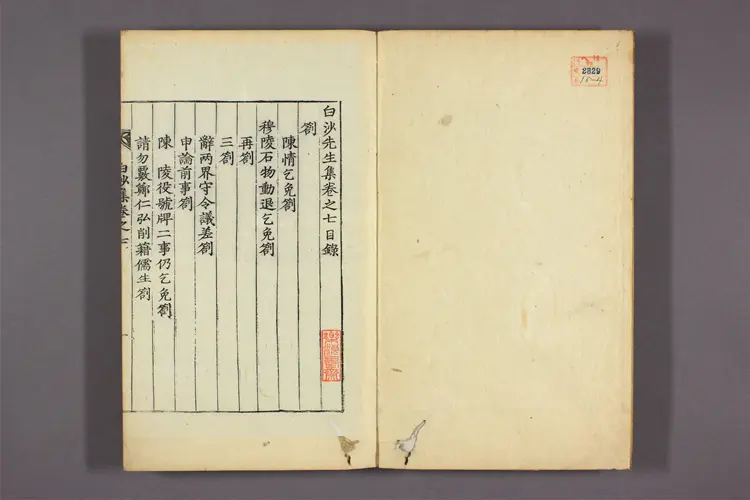 白沙先生集卷之七目錄
劄
陳情乞免劄
穆陵石物動退乞免劄
再劄
三劄
辭兩界守令議差劄
申論前事劄
陳 陵役號牌二事仍乞免劄
請勿覈鄭仁弘削籍儒生劄
白沙集卷之七
一
2829
15-4